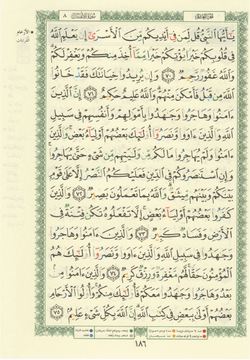 يَٰٓأَيُّهَا ٱلنَّبِيُّ قُل لِّمَن فِيٓ أَيۡدِيكُم مِّنَ ٱلۡأَسۡرَىٰٓ إِن يَعۡلَمِ ٱللَّهُ
فِي قُلُوبِكُمۡ خَيۡرٗا يُؤۡتِكُمۡ خَيۡرٗا مِّمَّآ أُخِذَ مِنكُمۡ وَيَغۡفِرۡ لَكُمۡۚ
وَٱللَّهُ غَفُورٞ رَّحِيمٞ ٧٠ وَإِن يُرِيدُواْ خِيَانَتَكَ فَقَدۡ خَانُواْ
ٱللَّهَ مِن قَبۡلُ فَأَمۡكَنَ مِنۡهُمۡۗ وَٱللَّهُ عَلِيمٌ حَكِيمٌ ٧١ إِنَّ ٱلَّذِينَ
ءَامَنُواْ وَهَاجَرُواْ وَجَٰهَدُواْ بِأَمۡوَٰلِهِمۡ وَأَنفُسِهِمۡ فِي سَبِيلِ
ٱللَّهِ وَٱلَّذِينَ ءَاوَواْ وَّنَصَرُوٓاْ أُوْلَٰٓئِكَ بَعۡضُهُمۡ أَوۡلِيَآءُ بَعۡضٖۚ وَٱلَّذِينَ
ءَامَنُواْ وَلَمۡ يُهَاجِرُواْ مَا لَكُم مِّن وَلَٰيَتِهِم مِّن شَيۡءٍ حَتَّىٰ يُهَاجِرُواْۚ
وَإِنِ ٱسۡتَنصَرُوكُمۡ فِي ٱلدِّينِ فَعَلَيۡكُمُ ٱلنَّصۡرُ إِلَّا عَلَىٰ قَوۡمِۭ
بَيۡنَكُمۡ وَبَيۡنَهُم مِّيثَٰقٞۗ وَٱللَّهُ بِمَا تَعۡمَلُونَ بَصِيرٞ ٧٢ وَٱلَّذِينَ
كَفَرُواْ بَعۡضُهُمۡ أَوۡلِيَآءُ بَعۡضٍۚ إِلَّا تَفۡعَلُوهُ تَكُن فِتۡنَةٞ فِي
ٱلۡأَرۡضِ وَفَسَادٞ كَبِيرٞ ٧٣ وَٱلَّذِينَ ءَامَنُواْ وَهَاجَرُواْ
وَجَٰهَدُواْ فِي سَبِيلِ ٱللَّهِ وَٱلَّذِينَ ءَاوَواْ وَّنَصَرُوٓاْ أُوْلَٰٓئِكَ هُمُ
ٱلۡمُؤۡمِنُونَ حَقّٗاۚ لَّهُم مَّغۡفِرَةٞ وَرِزۡقٞ كَرِيمٞ ٧٤ وَٱلَّذِينَ ءَامَنُواْ مِنۢ
بَعۡدُ وَهَاجَرُواْ وَجَٰهَدُواْ مَعَكُمۡ فَأُوْلَٰٓئِكَ مِنكُمۡۚ وَأُوْلُواْ ٱلۡأَرۡحَامِ
بَعۡضُهُمۡ أَوۡلَىٰ بِبَعۡضٖ فِي كِتَٰبِ ٱللَّهِۚ إِنَّ ٱللَّهَ بِكُلِّ شَيۡءٍ عَلِيمُۢ ٧٥
١٨٦